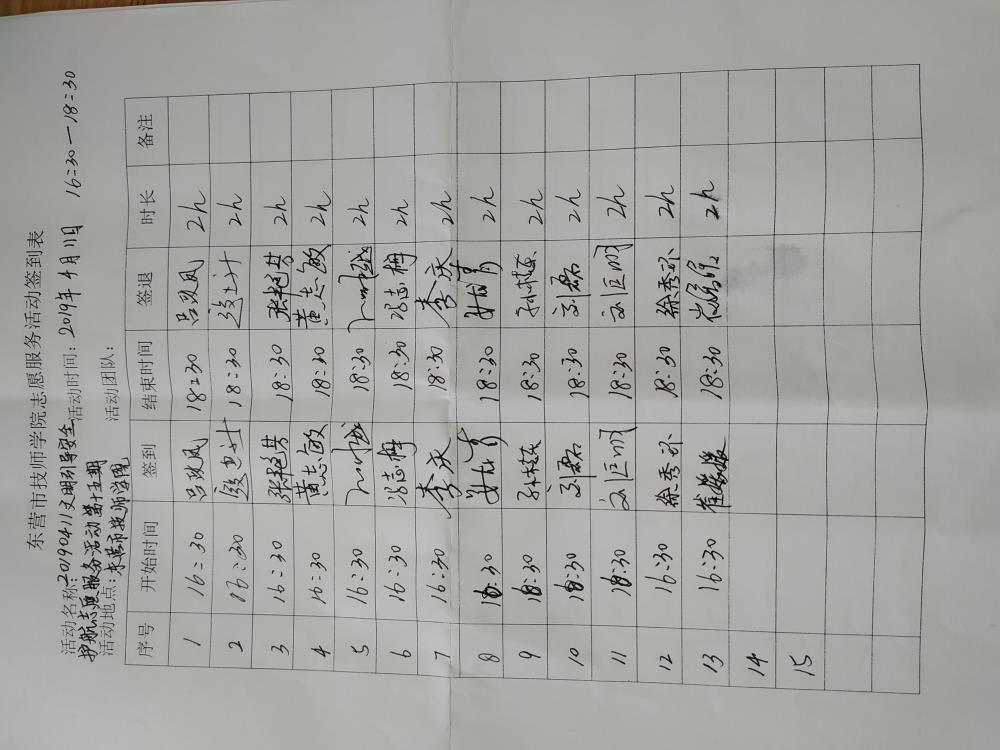 东营市技师学院志愿服务活动签到表
活动名称:20190411文明引导安全 活动时间:2019年4月11日 16:30—18:30
护航志愿服务活动第十五期
活动地点:东营市技师学院 活动团队:
序号 开始时间 签到 结束时间 签退 时长 备注
1 16:30 吕玫凤 18:30 吕玫凤 2h
2 16:30 18:30 2h
3 16:30 张艳芳 18:30 张艳芳 2h
4 16:30 黄志敏 18:30 黄志敏 2h
5 16:30 18:30 2h
6 16:30 冯志梅 18:30 冯志梅 2h
7 16:30 李庆 18:30 李庆 2h
8 16:30 18:30 2h
9 16:30 孙树英 18:30 孙树英 2h
10 16:30 刘磊 18:30 刘磊 2h
11 16:30 刘巨明 18:30 刘巨明 2h
12 16:30 徐秀环 18:30 徐秀环 2h
13 16:30 18:30 2h
14
15